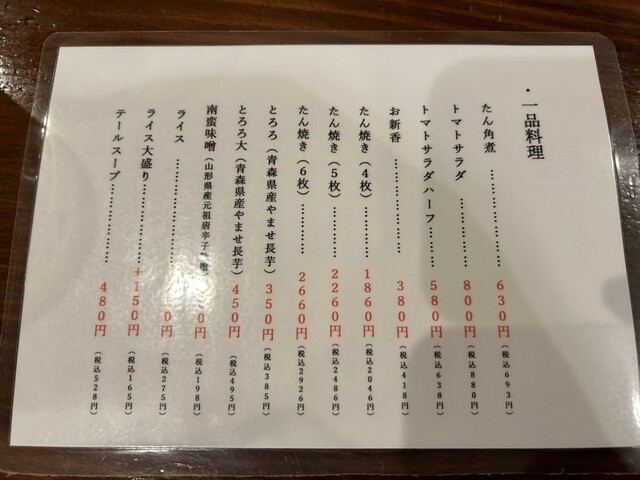 ・一品料理
たん角煮 ………………… 630円（税込693円）
トマトサラダ ………… 800円（税込880円）
トマトサラダハーフ ……… 580円（税込638円）
お新香 ………………… 380円（税込418円）
たん焼き（4枚）………… 1860円（税込2046円）
たん焼き（5枚）………… 2260円（税込2486円）
たん焼き（6枚）………… 2660円（税込2926円）
とろろ（青森県産やませ長芋） 350円（税込385円）
とろろ大（青森県産やませ長芋） 450円（税込495円）
南蛮味噌（山形県産元祖唐辛子 円（税込198円）
ライス ………………… 円（税込275円）
ライス大盛り ………………… +150円（税込165円）
テールスープ ………………… 480円（税込528円）